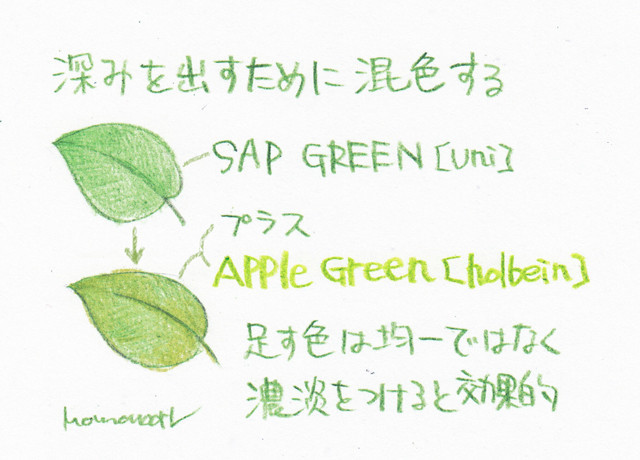 深みを出すために混色する
SAP GREEN [uni]
プラス
APPle Green [holbein]
足す色は均一ではなく
濃淡をつけると効果的